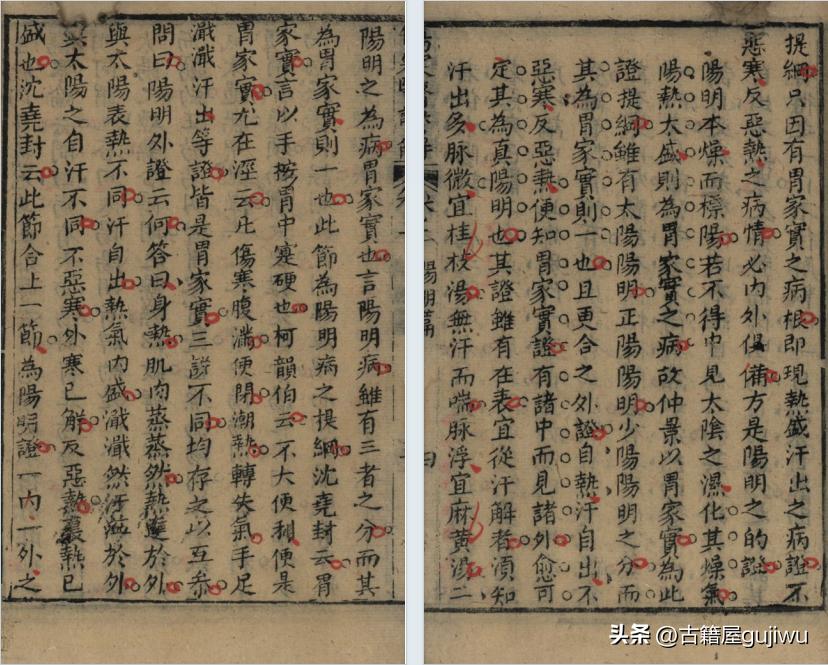 陽明之為病胃家實也言陽明病雖有三者之分而其
為胃家實則一也此節為陽明病之提綱沈堯封云胃
家實言以手按胃中實硬也柯韻伯云不大便利便是
胃家實尤在涇云凡傷寒腹滿便閉潮熱轉失氣手足
濈濈汗出等證皆是胃家實三說不同均存之以互參
問曰陽明外證云何答曰身熱肌肉蒸蒸然熱達於外
與太陽表熱不同汗自出熱氣內盛濈濈然汗溢於外
與太陽之自汗不同不惡寒外寒已解反惡熱裏熱已
盛也沈堯封云此節合上一節為陽明證一內一外之
提綱只因有胃家實之病根即現熱盛汗出之病證不
惡寒反惡熱之病情必內外俱備方是陽明之的證
陽明本燥而標陽若不得中見太陰之濕化其燥氣
陽熱太盛則為胃家實之病故仲景以胃家實為此
證提綱雖有太陽陽明正陽陽明少陽陽明之分而
其為胃家實則一也且更合之外證自熱汗自出不
惡寒反惡熱便知胃家實證有諸中而見諸外愈可
定其為真陽明也其證雖有在表宜從汗解者須知
汗出多脈微宜桂枝湯無汗而喘脈浮宜麻黃湯二
陽明篇
四
头条 @古籍屋gujiwu